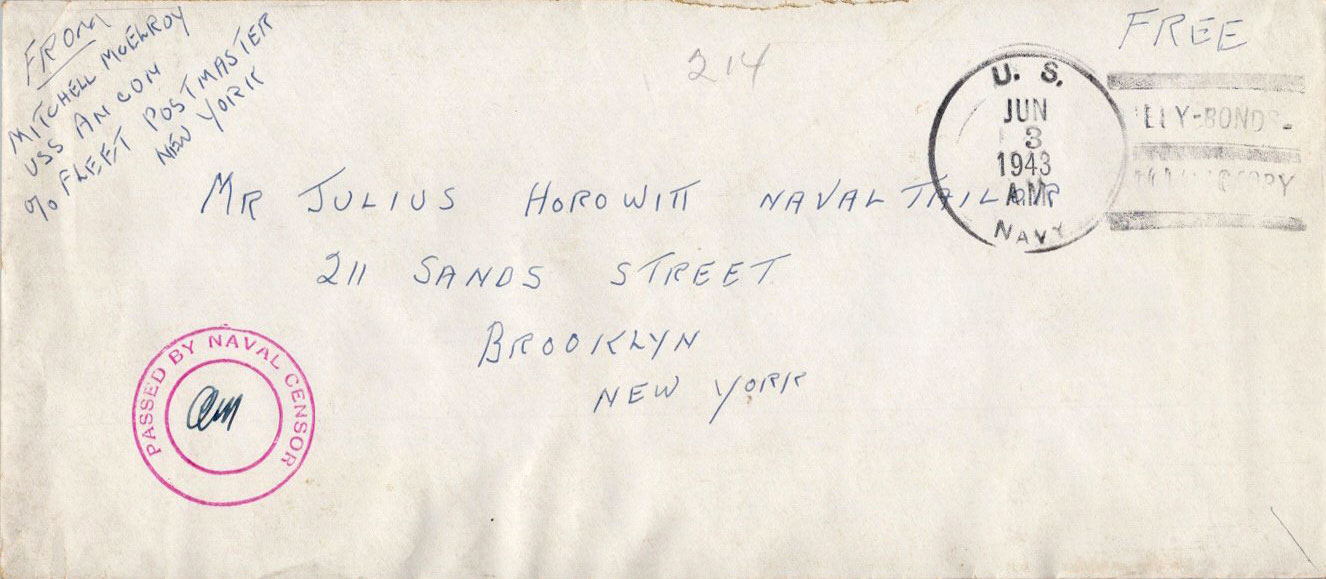 FROM
MITCHELL McELROY
USS ANCON
% FLEET POSTMASTER
NEW YORK
214
FREE
U. S.
JUN
3
1943
A.M.
NAVY
MR JULIUS HOROWITT NAVAL TAILOR
211 SANDS STREET
BROOKLYN
NEW YORK
PASSED BY NAVAL CENSOR